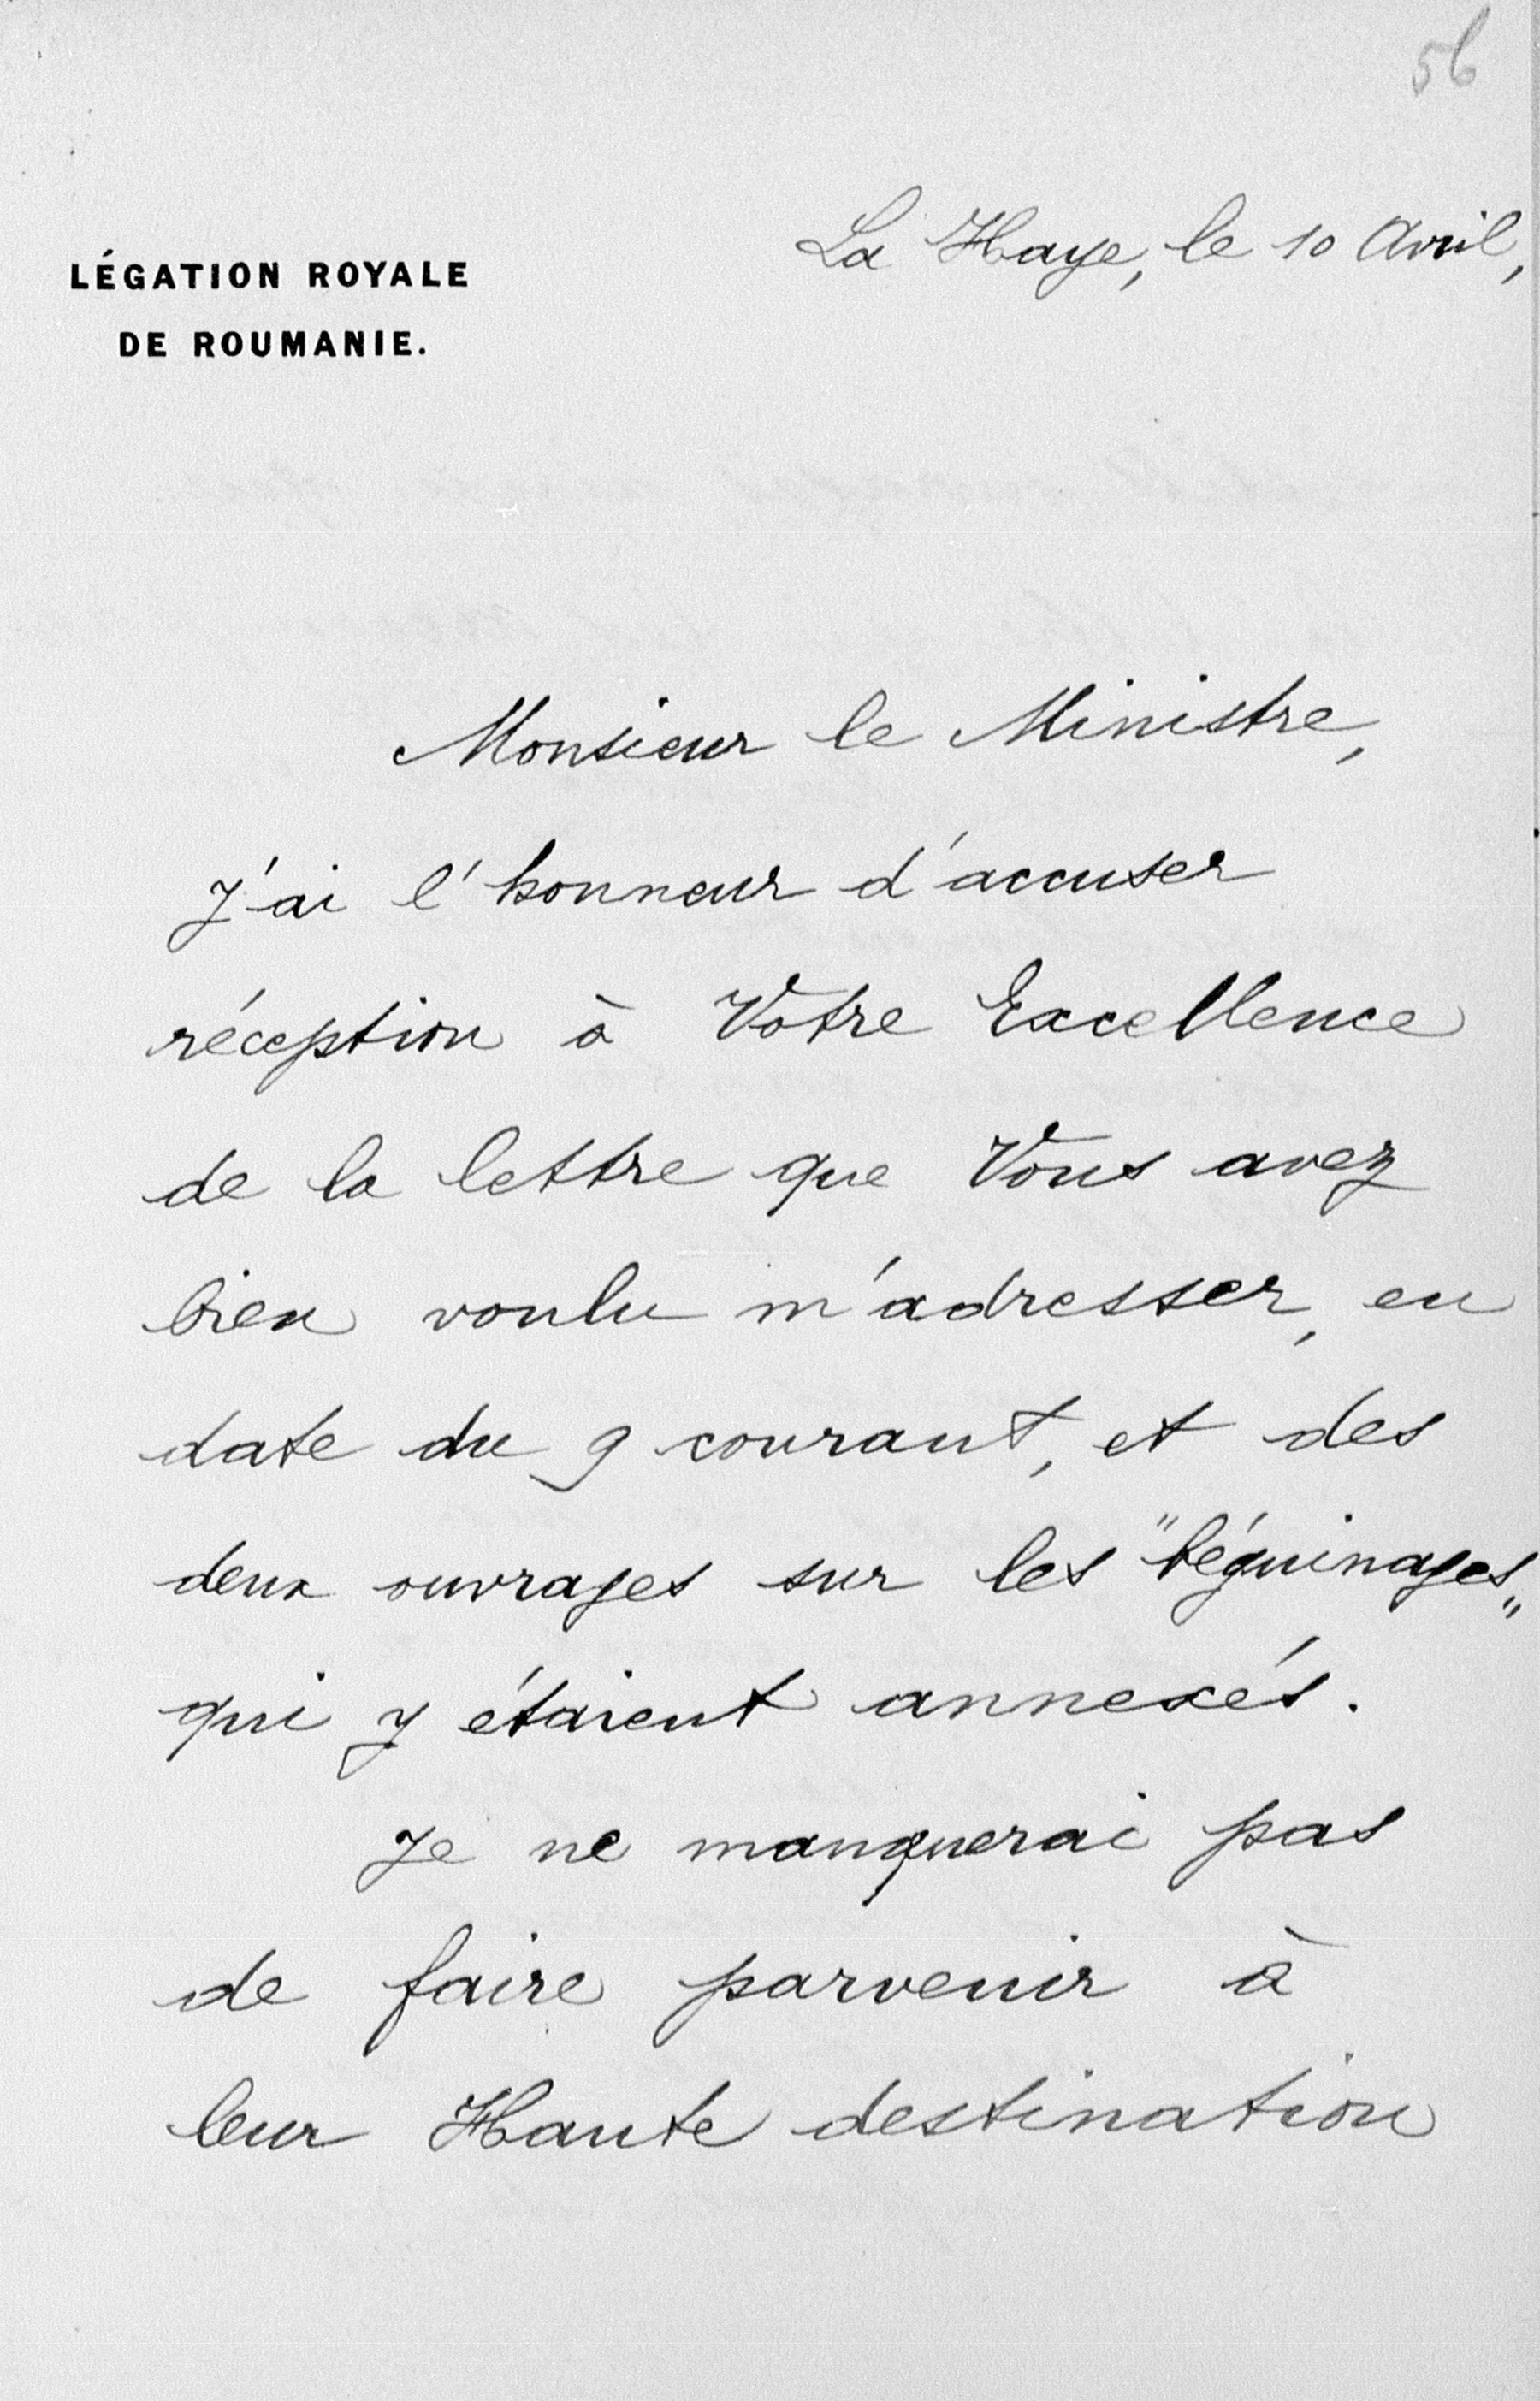 56
La Haye, le 10 Avril,
LÉGATION ROYALE
DE ROUMANIE.
Monsieur le Ministre,
J'ai l'honneur d'accuser
réception à Votre Excellence
de la lettre que Vous avez
bien voulu m'adresser, en
date du 9 courant, et des
deux ouvrages sur les "béguinages„
qui y étaient annexés.
Je ne manquerai pas
de faire parvenir à
leur Haute destination